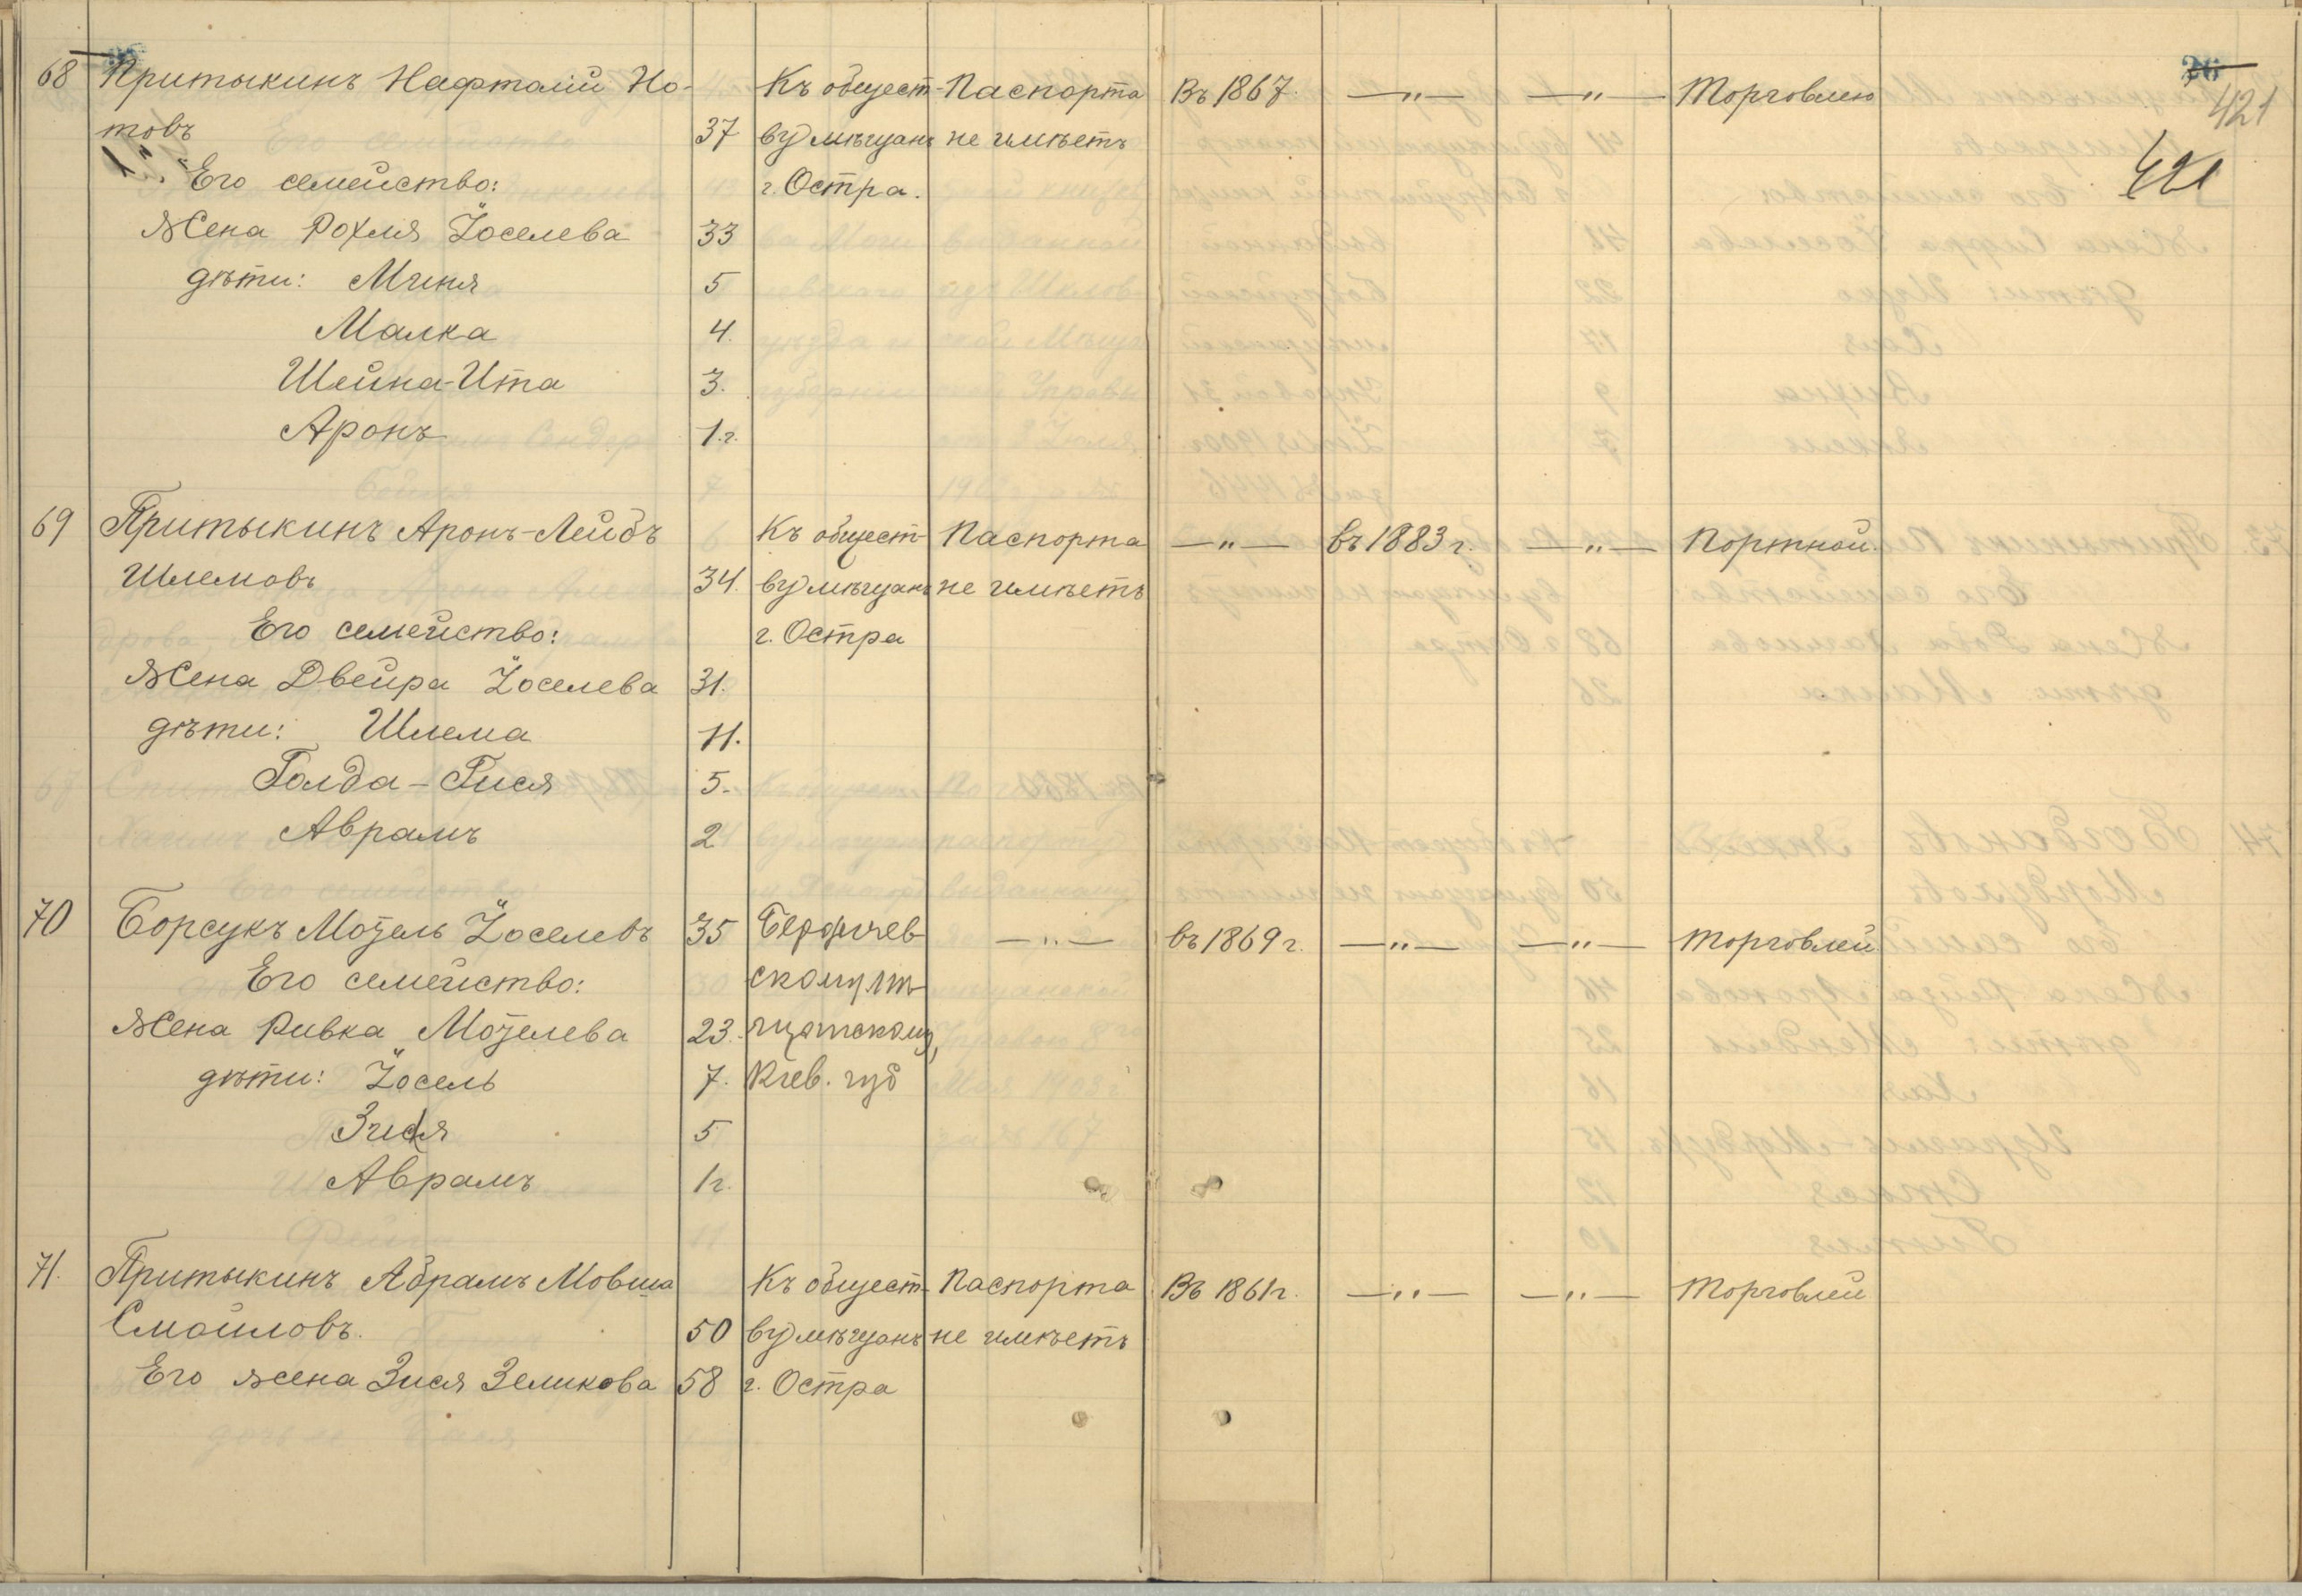 26
421
421
68 Притыкинъ Нафталій Но- Къ общест- Паспорта Въ 1867 —"— —"— Торговлею
товъ 37 ву мѣщанъ не имѣетъ
Его семейство: г. Остра.
Жена Рохля Іоселева 33
дѣти: Миня 5
Малка 4.
Шейна-Ита 3.
Аронъ 1 г.
69 Притыкинъ Аронъ-Лейбъ Къ общест- Паспорта —"— въ 1883 г. —"— Портной.
Шлемовъ 34. ву мѣщанъ не имѣетъ
Его семейство: г. Остра
Жена Двейра Іоселева 31.
дѣти: Шлема 11.
Голда-Гися 5.
Аврамъ 2
70 Борсукъ Мотель Іоселевъ 35 Бердичев- —"— въ 1869 г. —"— —"— Торговлей
Его семейство: скому мѣ-
Жена Ривка Мотелева 23. щанскому,
дѣти: Іосель 7. Кіев. губ
Зися 5
Аврамъ 1 г.
71. Притыкинъ Абрамъ Мовша Къ общест- Паспорта Въ 1861 г. —"— —"— Торговлей
Смайловъ. 50 ву мѣщанъ не имѣетъ
Его жена Зися Зеликова 58 г. Остра